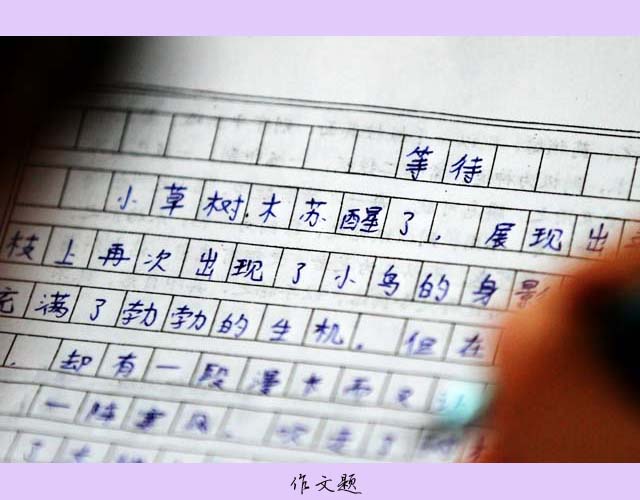 等待
小草树木苏醒了，展现出
枝上再次出现了小鸟的身影
充满了勃勃的生机。但在
却有一段漫长而又
一阵寒风，吹走了
了
作文题